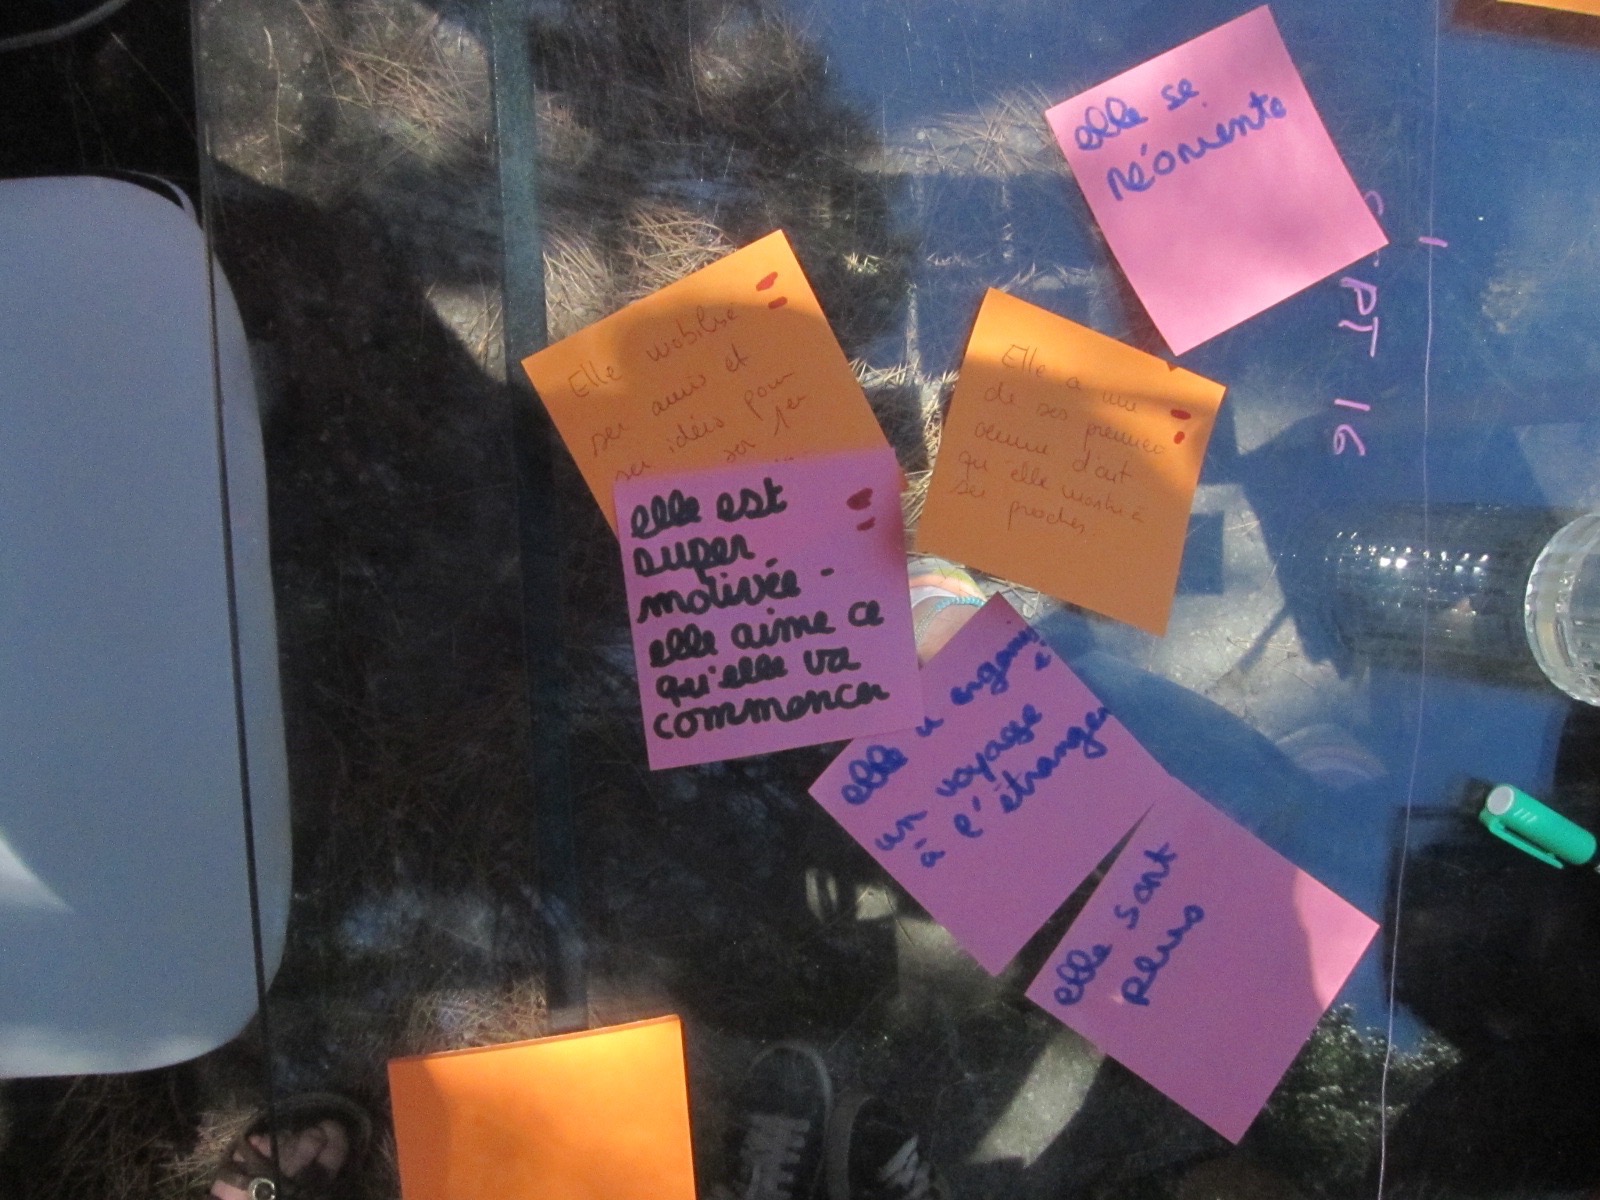 elle se
réoriente
Elle mobilise
ses amis et
ses idées pour
son 1er
Elle a un
de ses premier
qu'elle montre à
ses
proches
elle est
super
motivée -
elle aime ce
qu'elle va
commencer
elle a organi
un voyage
à l'étranger
elle sont
plus
SEPT 16